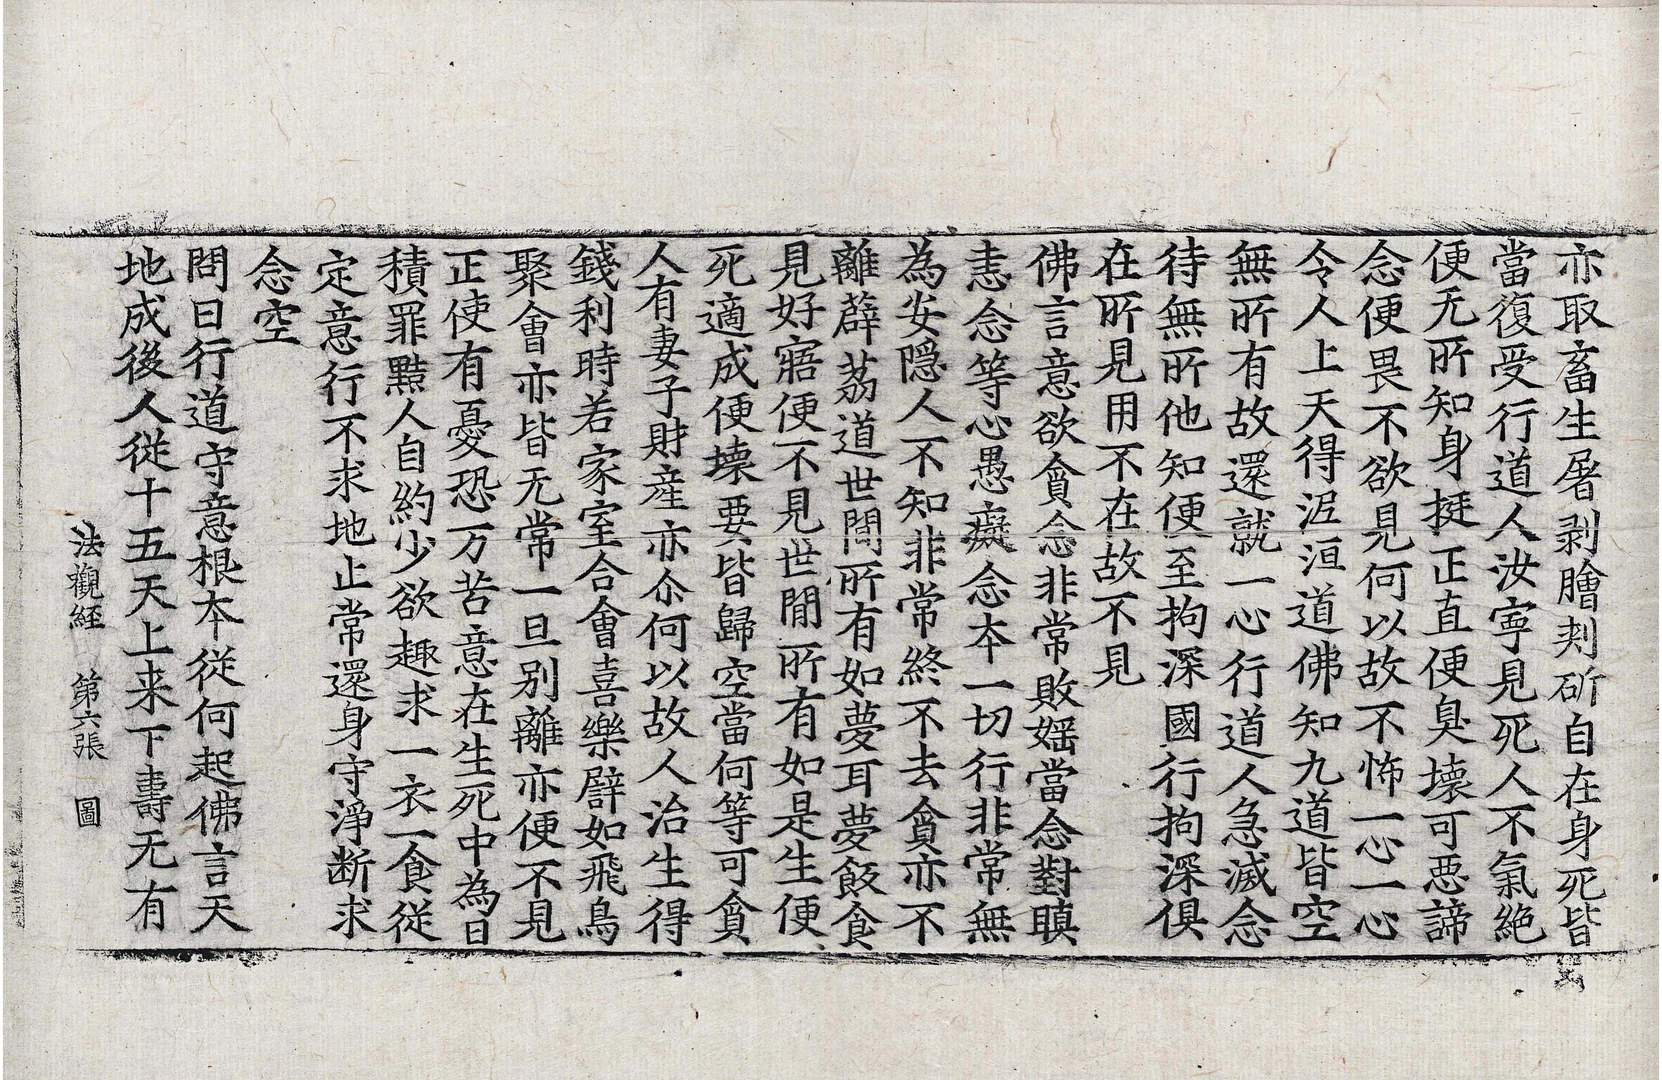 亦取畜生屠剥膾刾斫自在身死皆
當復受行道人汝寧見死人不氣絶
便无所知身挺正直便臭壞可惡諦
念便畏不欲見何以故不怖一心一心
令人上天得泥洹道佛知九道皆空
無所有故還就一心行道人急滅念
待無所他知便至拘深國行拘深俱
在所見用不在故不見
佛言意欲貪念非常敗婬當念對瞋
恚念等心愚癡念本一切行非常無
為安隱人不知非常終不去貪亦不
離薜荔道世間所有如夢耳夢飯食
見好寤便不見世間所有如是生便
死適成便壞要皆歸空當何等可貪
人有妻子財産亦尒何以故人治生得
錢利時若家室合會喜樂譬如飛鳥
聚會亦皆无常一旦别離亦便不見
正使有憂恐万苦意在生死中為日
積罪黠人自約少欲趣求一衣一食従
定意行不求地止常還身守淨断求
念空
問曰行道守意根本從何起佛言天
地成後人從十五天上来下壽无有
法觀経 第六張 圖